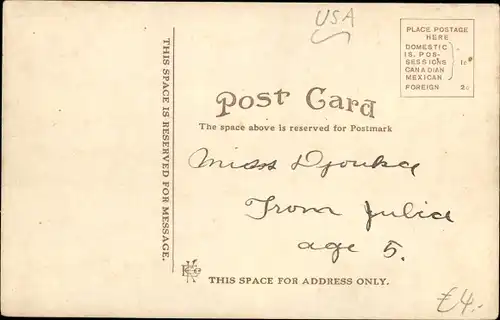 USA
PLACE POSTAGE
HERE
DOMESTIC
IS. POS-
SESSIONS 1¢
CANADIAN
MEXICAN
FOREIGN 2¢
THIS SPACE IS RESERVED FOR MESSAGE.
Post Card
The space above is reserved for Postmark
Miss Djouka
From Julia
age 5.
THIS SPACE FOR ADDRESS ONLY.
£4.-